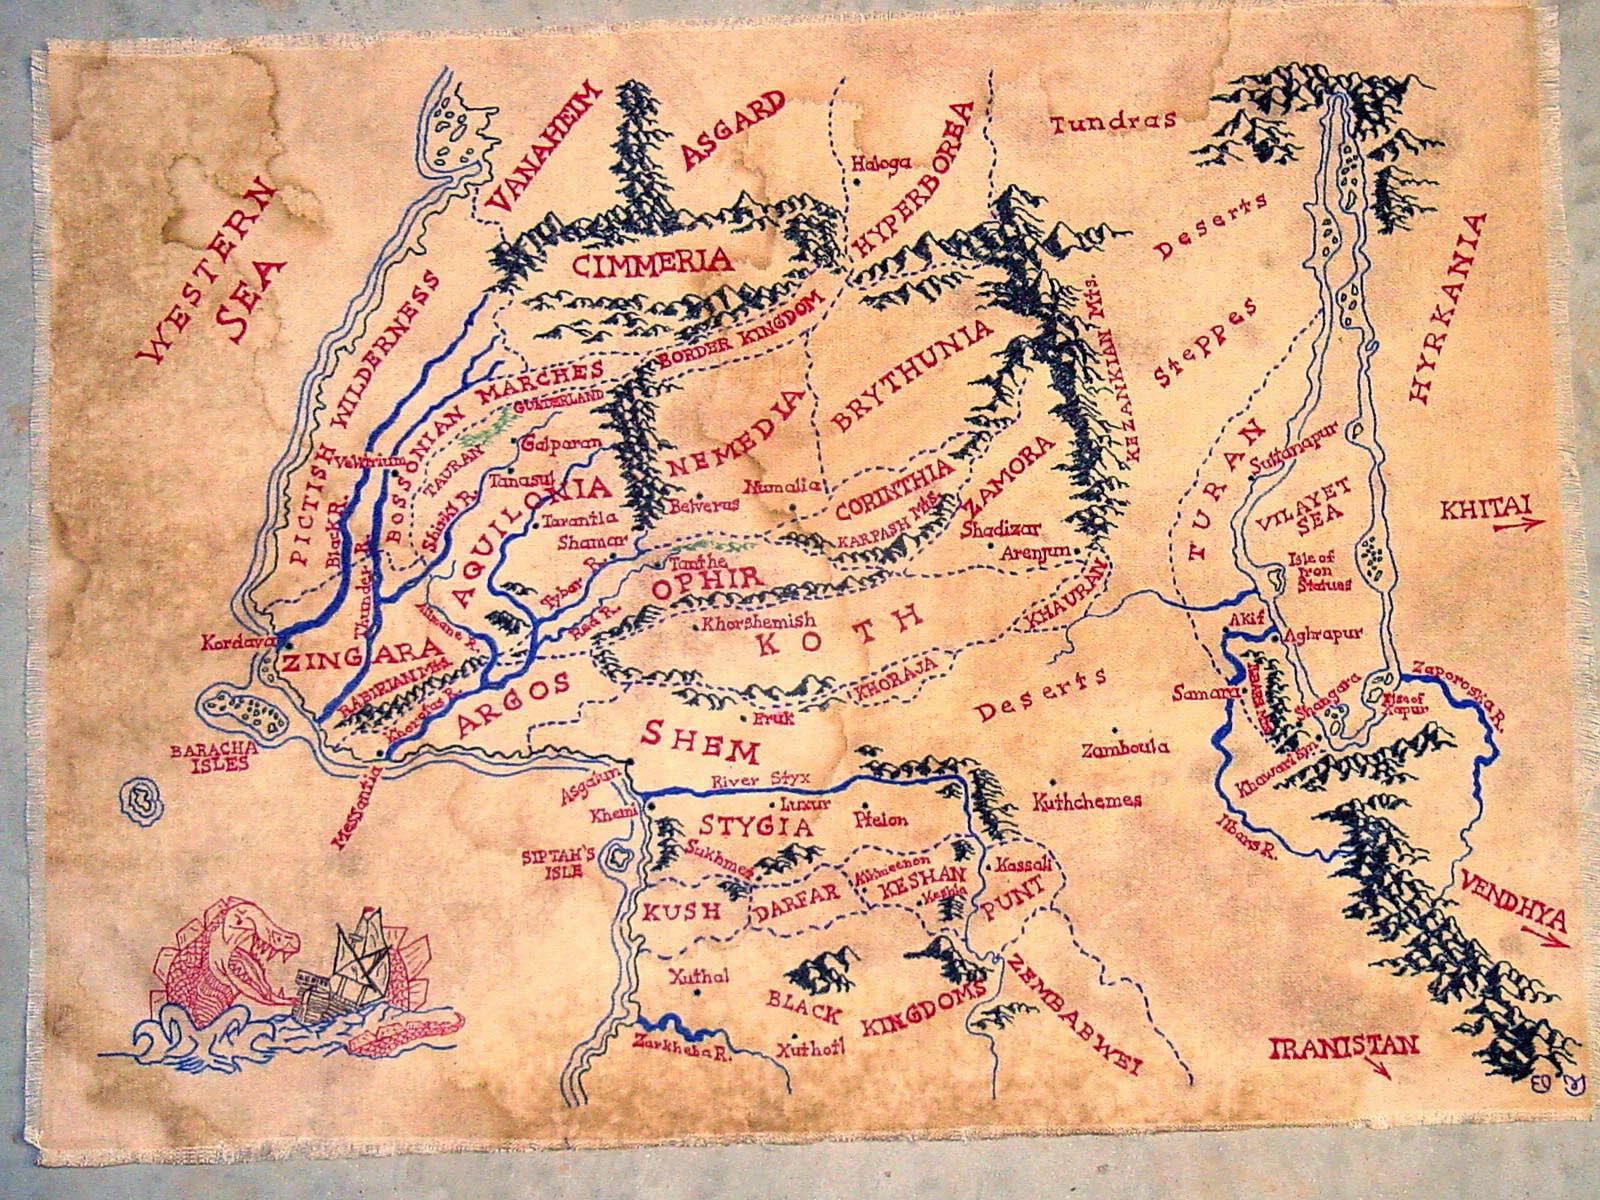 WESTERN
SEA
VANAHEIM
ASGARD
Haloga
HYPERBOREA
Tundras
Deserts
Steppes
HYRKANIA
CIMMERIA
BORDER KINGDOM
KEZANKIAN Mts.
PICTISH WILDERNESS
BOSSONIAN MARCHES
GUNDERLAND
TAURAN
Galparan
Tanasul
Velitrium
Black R.
Thunder R.
Shirki R.
AQUILONIA
Tarantia
Shamar
Tybor R.
Red R.
Alimane R.
NEMEDIA
Belverus
Numalia
BRYTHUNIA
CORINTHIA
KARPASH Mts.
ZAMORA
Shadizar
Arenjun
TURAN
Sultanapur
VILAYET
SEA
KHITAI
Isle of
Iron
Statues
Akif
Aghrapur
Tanthe
OPHIR
Khorshemish
KOTH
KHAURAN
KHORAJA
Kordava
ZINGARA
RABIRIAN Mts.
Khorotas R.
ARGOS
Messantia
BARACHA
ISLES
SHEM
Eruk
Deserts
Zamboula
Kuthchemes
Samara
Shangara
Isle of
Xapur
Zaporoska R.
Khawarism
Ilbars R.
VENDHYA
IRANISTAN
Asgalun
Khemi
River Styx
Luxur
Pteion
STYGIA
Sukhmet
SIPTAH'S
ISLE
KUSH
DARFAR
KESHAN
Keshia
Kassali
PUNT
Xuthal
BLACK
KINGDOMS
ZEMBABWEI
Zarkheba R.
Xuthotl